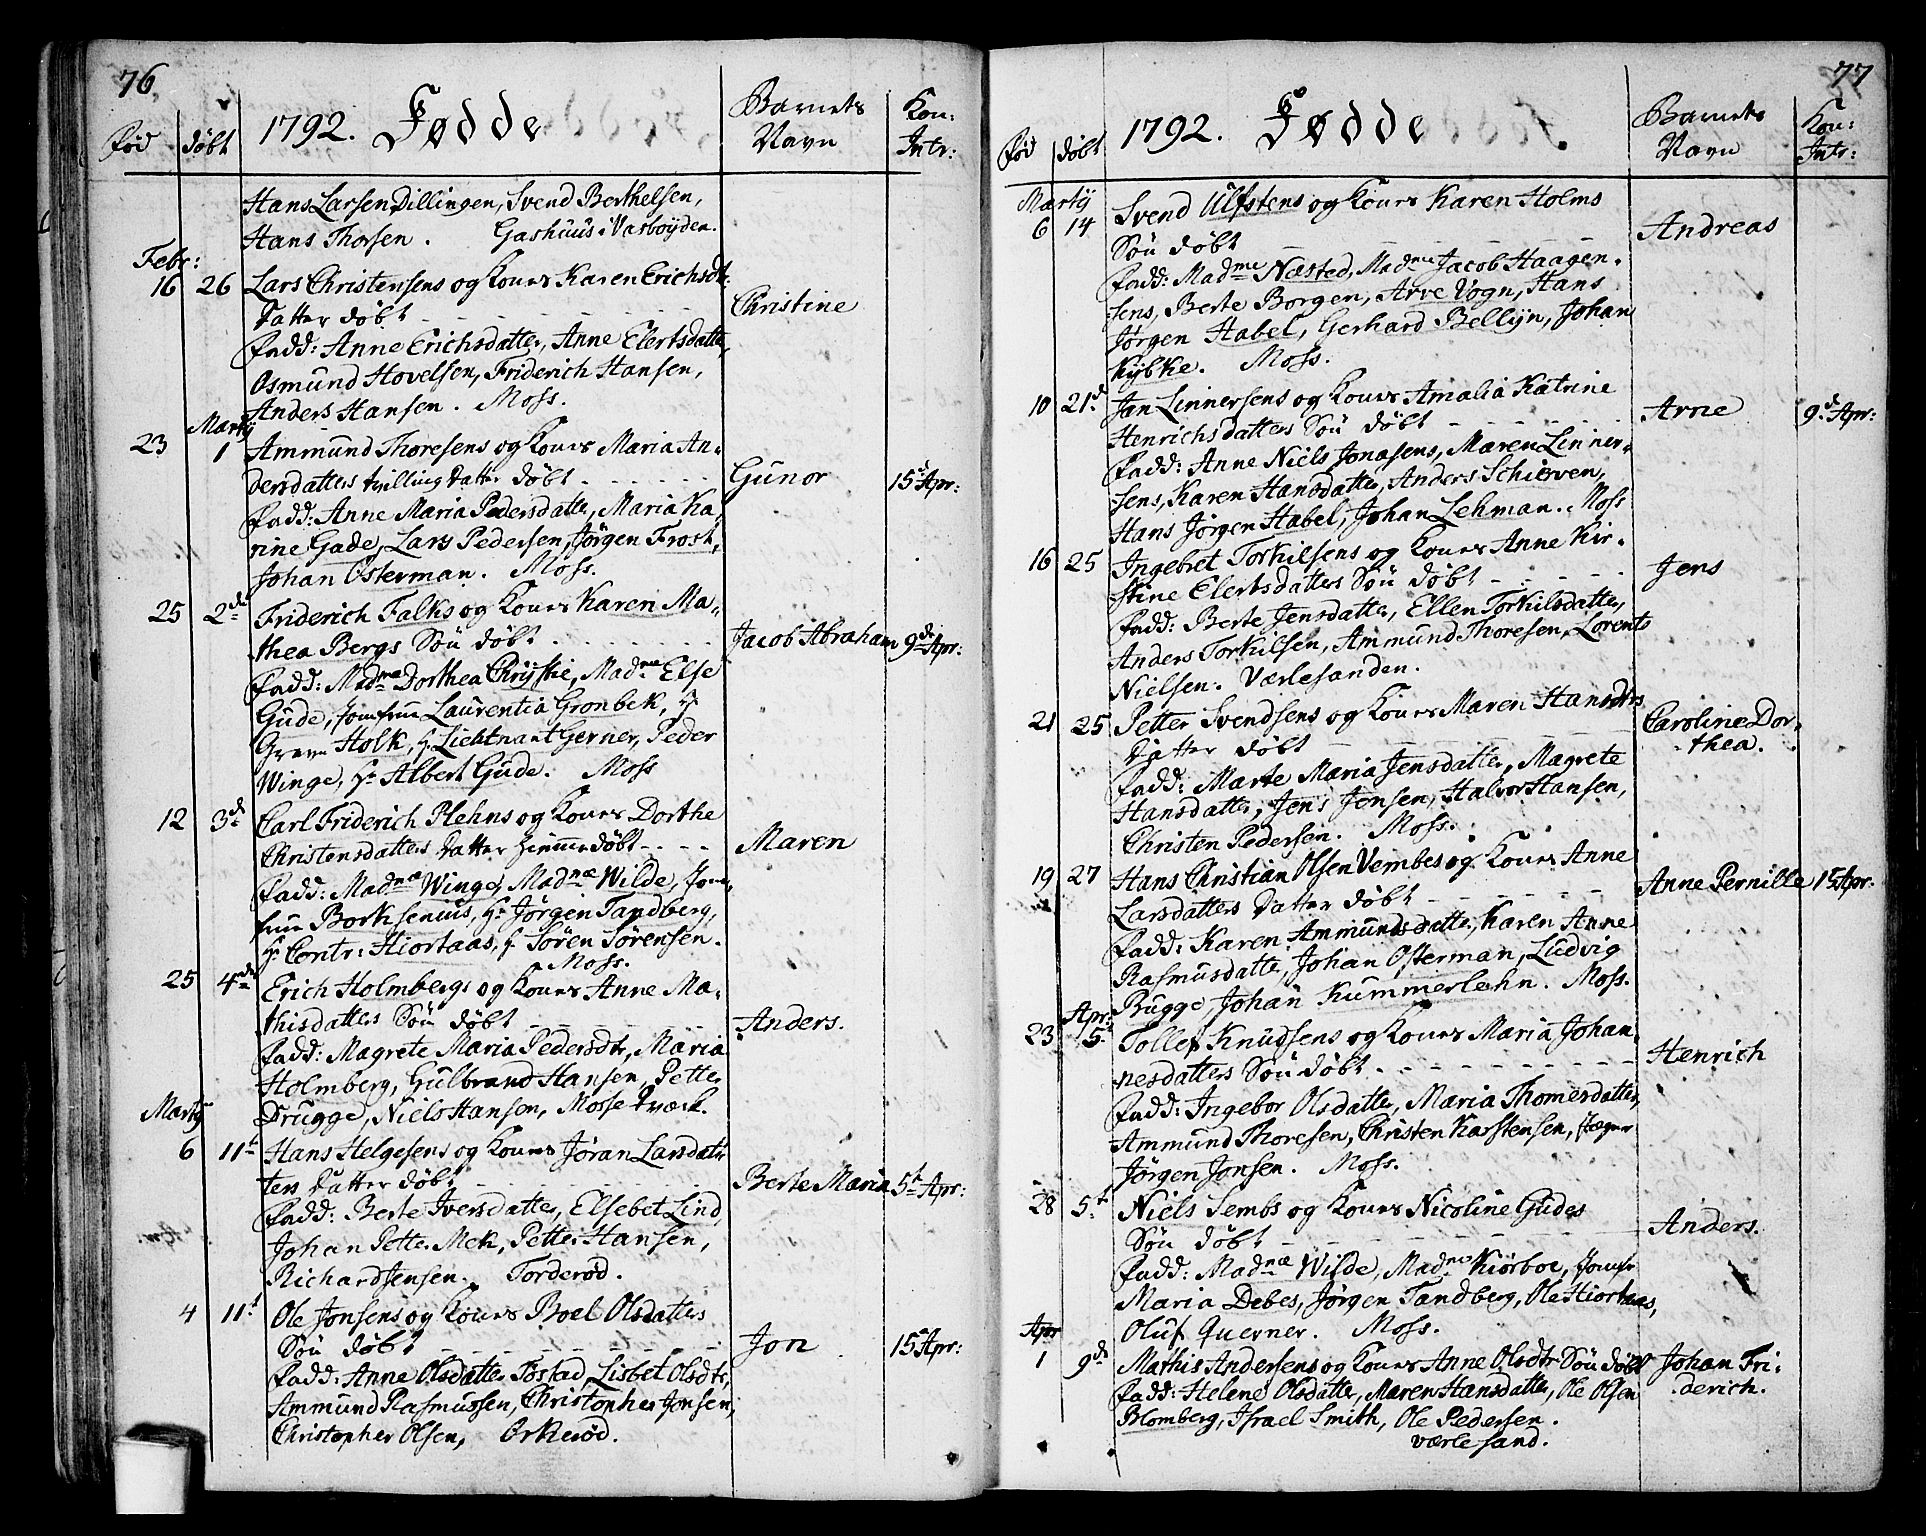 76
Fød döbt 1792. Fødde Barnets Navn Kon: Intr:
Hans Larsen Dillingen, Svend Berthelsen,
Hans Thorsen. Gashuus i Varböyden.
Febr:
16 26 Lars Christensens og Kones Karen Erichsdtr:
Datter döbt Christine
Fadd: Anne Erichsdatter, Anne Elertsdatter,
Osmund Hovelsen, Friderich Hansen,
Anders Hansen. Moss.
Martÿ
23 1 Ammund Thoresens og Kones Maria An-
dersdatters tvilling datter döbt Gunor 15 Apr:
Fadd: Anne Maria Pedersdatter, Maria Ka-
rine Gade, Lars Pedersen, Jörgen Frost,
Johan Osterman. Moss.
25 2de Friderich Falks og Kones Karen Ma-
thea Bergs Sön döbt Jacob Abraham 9de Apr:
Fadd: Madme Dorthea Chrÿstie, Madme Else
Gude, Jomfrue Laurentia Gronbek, Hr
Greve Holk, Hr Lichtnant Gerner, Peder
Winge, Hr Albert Gude. Moss
12 3de Carl Friderich Plehns og Kones Dorthe
Christensdatters Datter hiemmedöbt Maren
Fadd: Madme Winge, Madme Wilde, Jom-
frue Borksenius, Hr Jörgen Tandberg,
Hr Contr: Hiortaas, Hr Sören Sörensen.
Moss.
25 4de Erich Holmbergs og Kones Anne Ma-
thisdatters Sön döbt Anders.
Fadd: Magrete Maria Pedersdtr, Maria
Holmberg, Gulbrand Hansen, Petter
Drugge, Niels Hansen, Mosse Værk.
Martÿ
6 11t Hans Helgesens og Kones Jöran Larsdat-
ters datter döbt Berte Maria 5t Apr:
Fadd: Berte Iversdatter, Elsebet Lind,
Johan Petter Mek, Petter Hansen,
Richard Jensen. Torderöd.
4 11t Ole Jonsens og Kones Boel Olsdatters
Sön döbt Jon 15 Apr:
Fadd: Anne Olsdatter Tostad, Lisbet Olsdtr,
Ammund Rasmussen, Christopher Jonsen,
Christopher Olsen, Orkeröd.
77
Fød döbt 1792. Fødde. Barnets Navn Kon: Intr:
Martÿ
6 14 Svend Ulfstens og Kones Karen Holms
Sön döbt Andreas
Fadd: Madme Næsted, Madme Jacob Haagen-
sens, Berte Borgen, Arve Vogn, Hans
Jörgen Habel, Gerhard Bellÿn, Johan
Kÿbke. Moss.
10 21de Jan Linnersens og Kones Amalia Katrine
Henrichsdatters Sön döbt Arne 9de Apr:
Fadd: Anne Niels Jonasens, Maren Linner-
sens, Karen Hansdatter, Anders Schierven,
Hans Jörgen Habel, Johan Lehman. Moss
16 25 Ingebret Torkilsens og Kones Anne Kir-
stine Elertsdatters Sön döbt Jens
Fadd: Berte Jensdatter, Ellen Torkilsdatter,
Anders Torkilsen, Ammund Thoresen, Lorents
Nielsen. Værlesanden.
21 25 Petter Svendsens og Kones Maren Hansdtrs
Datter döbt Caroline Dor-
thea.
Fadd: Marte Maria Jensdatter, Magrete
Hansdatter, Jens Jensen, Halvor Hansen,
Christen Pedersen. Moss.
19 27 Hans Christian Olsen Vembes og Kones Anne
Larsdatters Datter döbt Anne Pernille 15 Apr:
Fadd: Karen Ammundsdatter, Karen Anne
Rasmusdatter, Johan Osterman, Ludvig
Bugge, Johan Kummerlehn. Moss.
Apr:
23 5t Tollef Knudsens og Kones Maria Johan-
nesdatters Sön döbt Henrich
Fadd: Ingebor Olsdatter, Maria Thomesdatter,
Ammund Thoresen, Christen Karstensen,
Jörgen Jonsen. Moss.
28 5t Niels Sembs og Kones Nicoline Gudes
Sön döbt Anders.
Fadd: Madme Wilde, Madme Kiörboe, Jomfr
Maria Debes, Jörgen Tandberg, Ole Hiorthaas,
Oluf Querner. Moss.
Apr
1 9de Mathis Andersens og Kones Anne Olsdtr Sön döbt Johan Fri-
derich.
Fadd: Helene Olsdatter, Maren Hansdatter, Ole Olsen
Blomberg, Israel Smith, Ole Pedersen.
Værlesand.